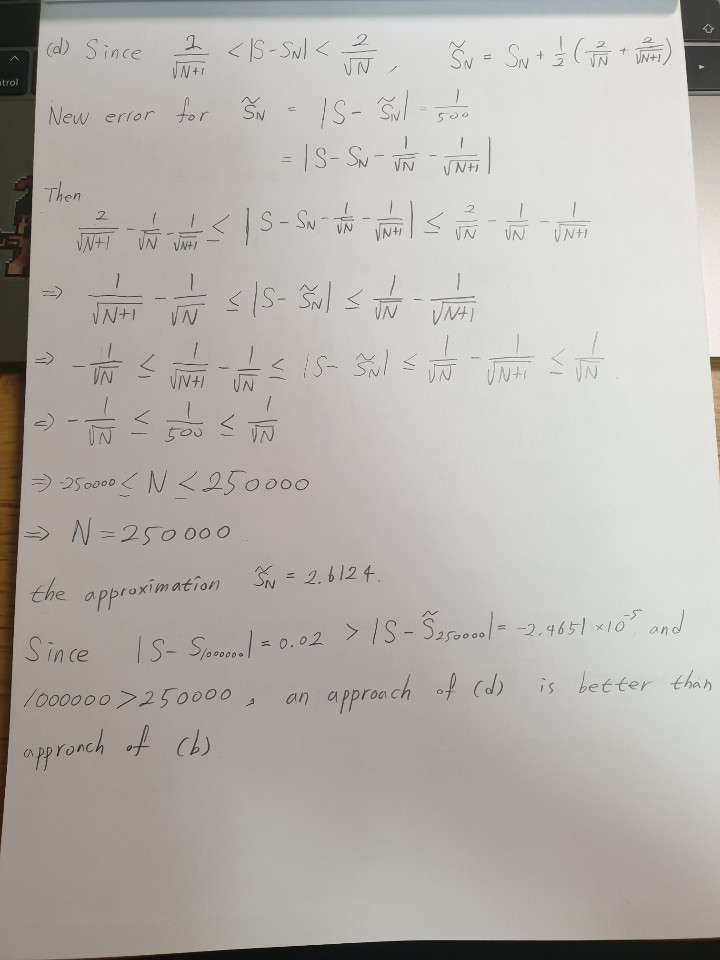 (d) Since 2/√N+1 < |S-SN| < 2/√N , S̃N = SN + 1/2 ( 2/√N + 2/√N+1 )
New error for S̃N = |S - S̃N| = 1/500
= |S - SN - 1/√N - 1/√N+1 |
Then
2/√N+1 - 1/√N - 1/√N+1 ≤ | S - SN - 1/√N - 1/√N+1 | ≤ 2/√N - 1/√N - 1/√N+1
⇒ 1/√N+1 - 1/√N ≤ |S - S̃N| ≤ 1/√N - 1/√N+1
⇒ - 1/√N ≤ 1/√N+1 - 1/√N ≤ |S - S̃N| ≤ 1/√N - 1/√N+1 ≤ 1/√N
⇒ - 1/√N ≤ 1/500 ≤ 1/√N
⇒ -250000 ≤ N ≤ 250000
⇒ N = 250000
the approximation S̃N = 2.6124.
Since |S - S1000000| = 0.02 > |S - S̃250000| = -2.4651 ×10^-5 and
1000000 > 250000 , an approach of (d) is better than
appronch of (b)